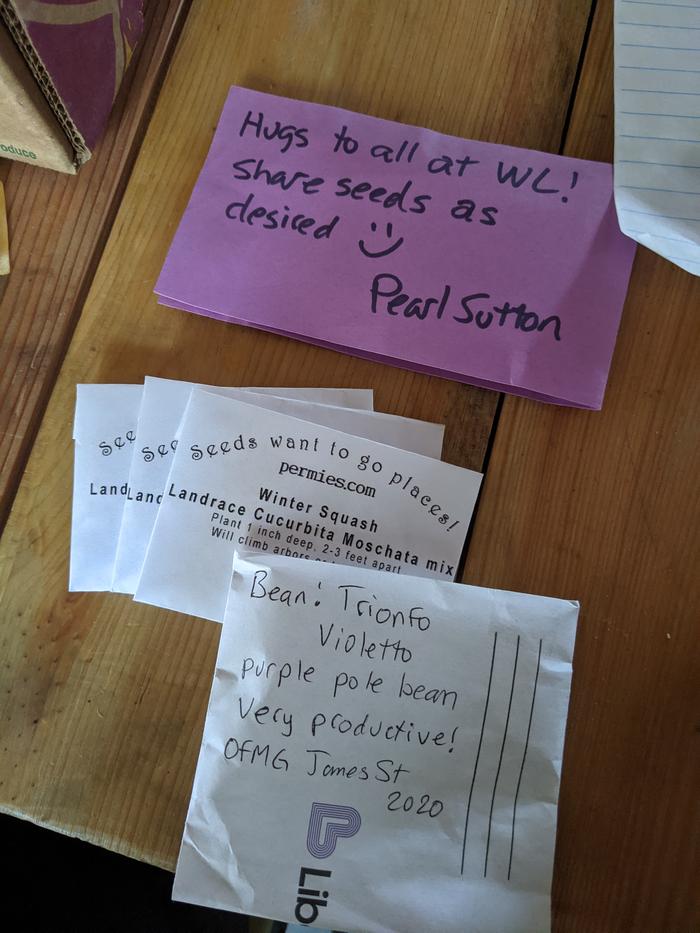 oduce
Hugs to all at WL!
share seeds as
desired :)
Pearl Sutton
See
See
Seeds want to go places!
permies.com
Land
Land
Winter Squash
Landrace Cucurbita Moschata mix
Plant 1 inch deep, 2-3 feet apart
Will climb arbors
Bean! Trionfo
Violetto
purple pole bean
Very productive!
OFMG James St
2020
Lib